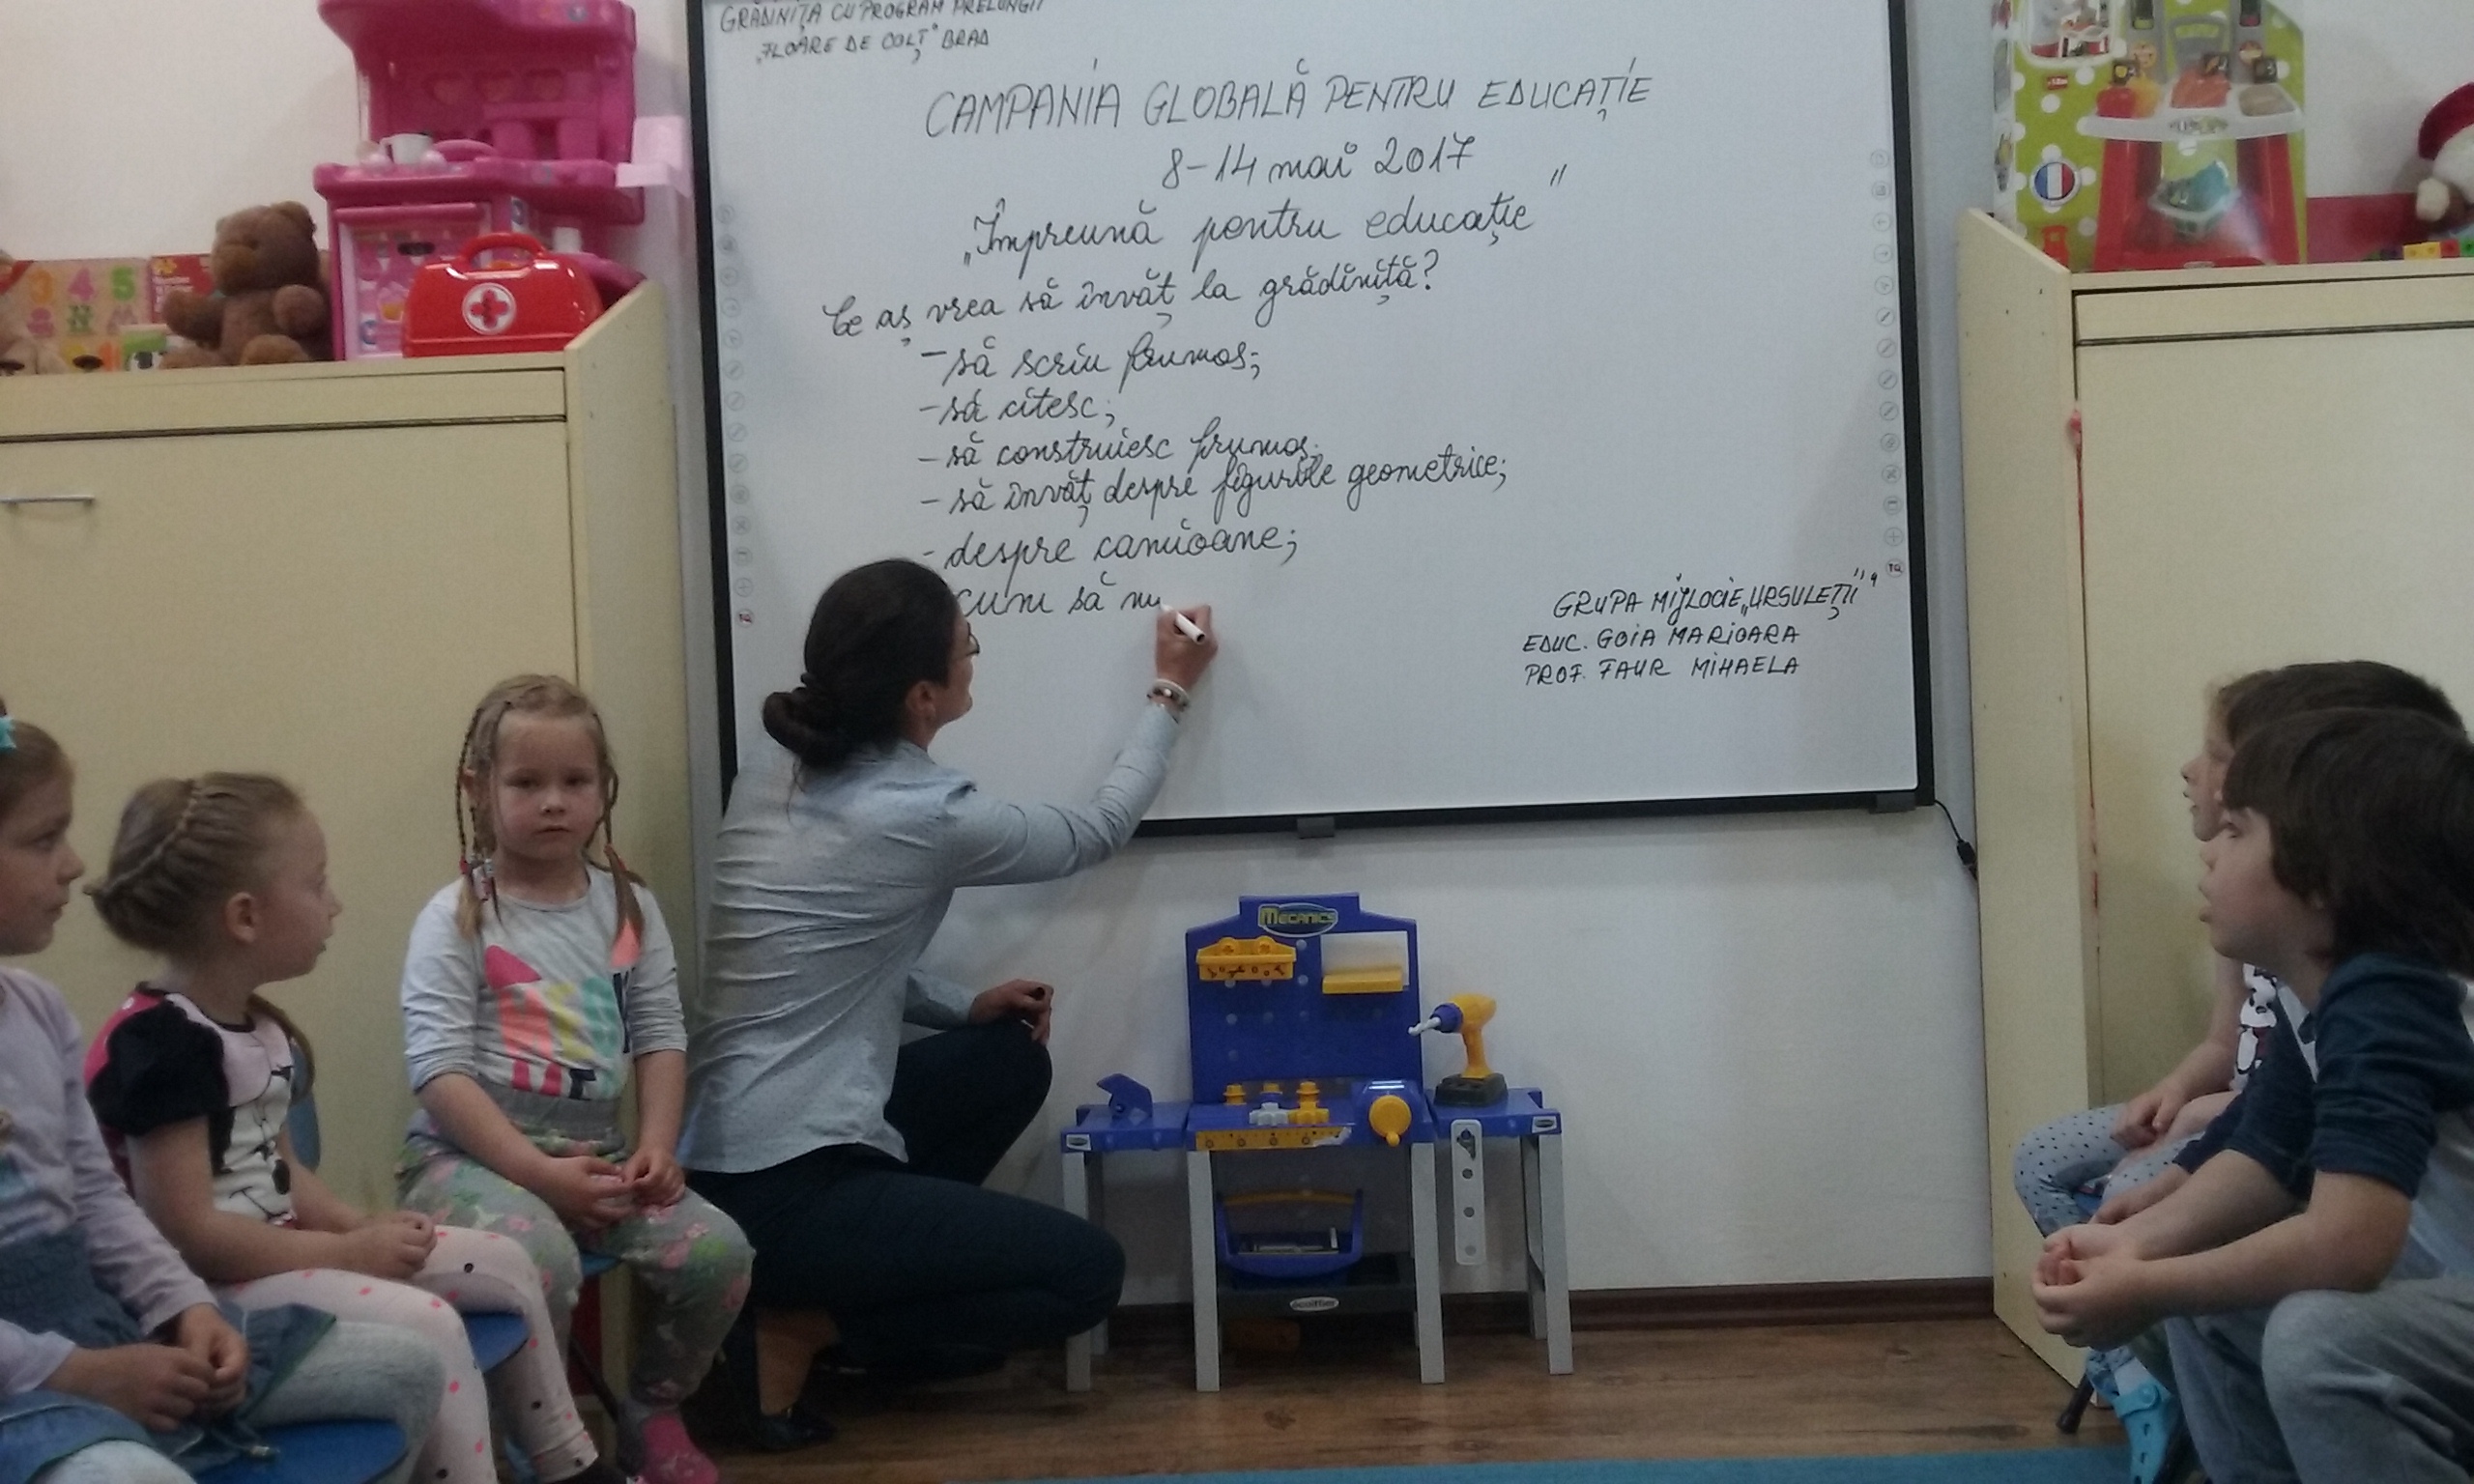 GRĂDINIȚA CU PROGRAM PRELUNGIT
„FLOARE DE COLȚ" BRAD
CAMPANIA GLOBALĂ PENTRU EDUCAȚIE
8-14 mai 2017
„Împreună pentru educație"
Ce aș vrea să învăț la grădiniță?
- să scriu frumos;
- să citesc;
- să construiesc frumos;
- să învăț despre figurile geometrice;
- despre camioane;
cum să nu
GRUPA MIJLOCIE „URSULEȚII",
EDUC. GOIA MARIOARA
PROF. FAUR MIHAELA
3 4 5
MECANICS
écoiffier